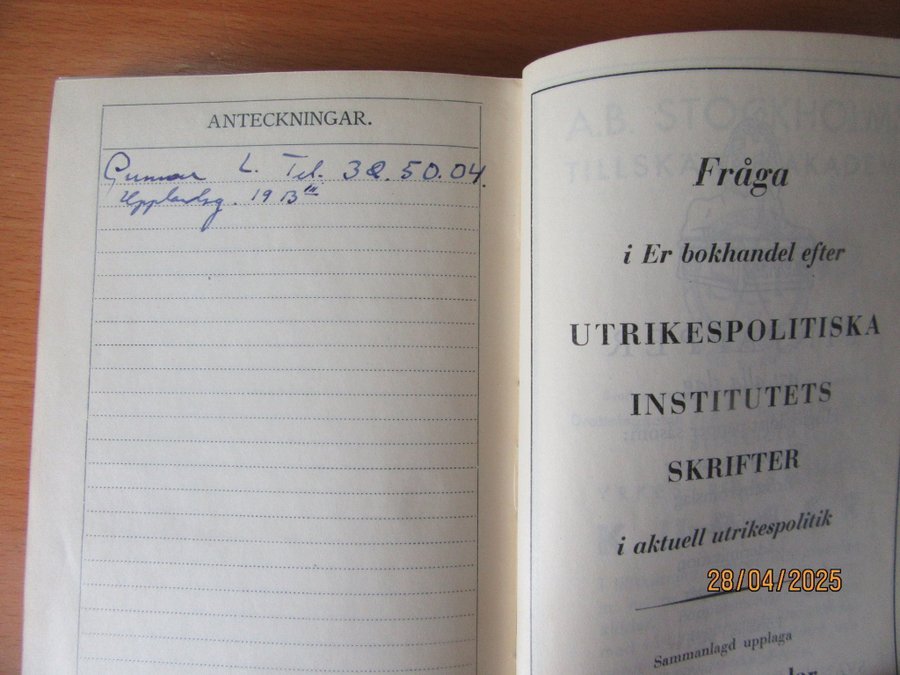 ANTECKNINGAR.
Gunnar L. Tel. 32.50.04.
Upplandsg. 19 B III
Fråga
i Er bokhandel efter
UTRIKESPOLITISKA
INSTITUTETS
SKRIFTER
i aktuell utrikespolitik
28/04/2025
Sammanlagd upplaga
A.B. STOCKHOLM